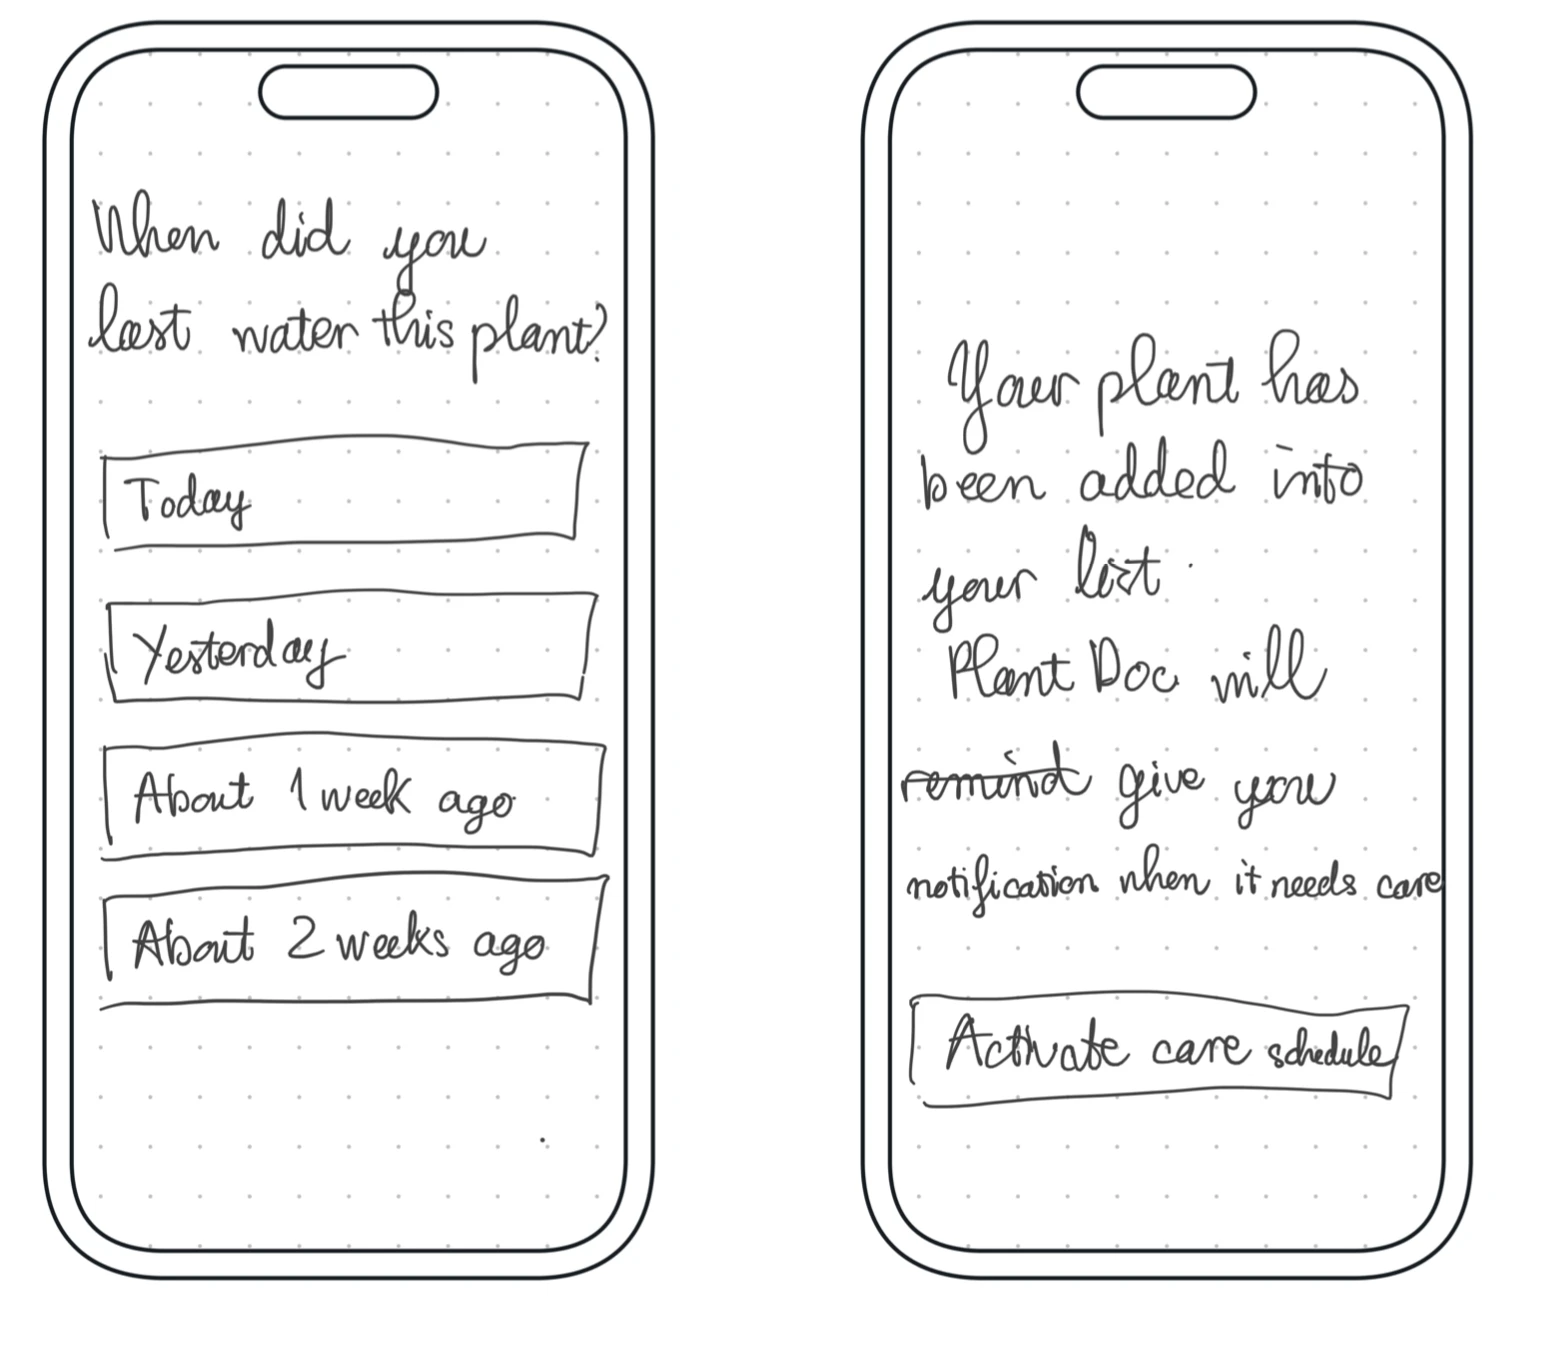 When did you
last water this plant?
Today
Yesterday
About 1 week ago
About 2 weeks ago
Your plant has
been added into
your list.
Plant Doc will
remind give you
notification when it needs care
Activate care schedule